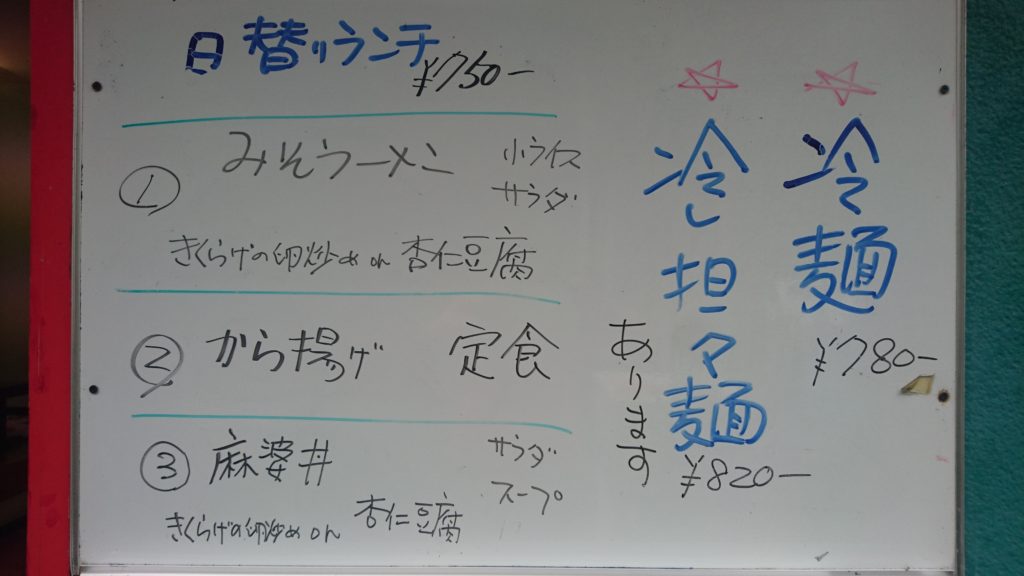 日替りランチ
¥750-
① みそラーメン 小ライス
サラダ
きくらげの卵炒めon 杏仁豆腐
② から揚げ 定食
③ 麻婆丼 サラダ
スープ
きくらげの卵炒めon 杏仁豆腐
☆冷麺
¥780-
☆冷し担々麺
¥820-
あります